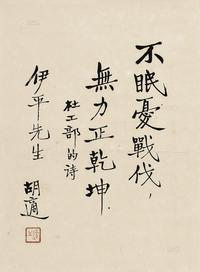 不眠憂戰伐，
無力正乾坤．
杜工部的詩
伊平先生
胡適